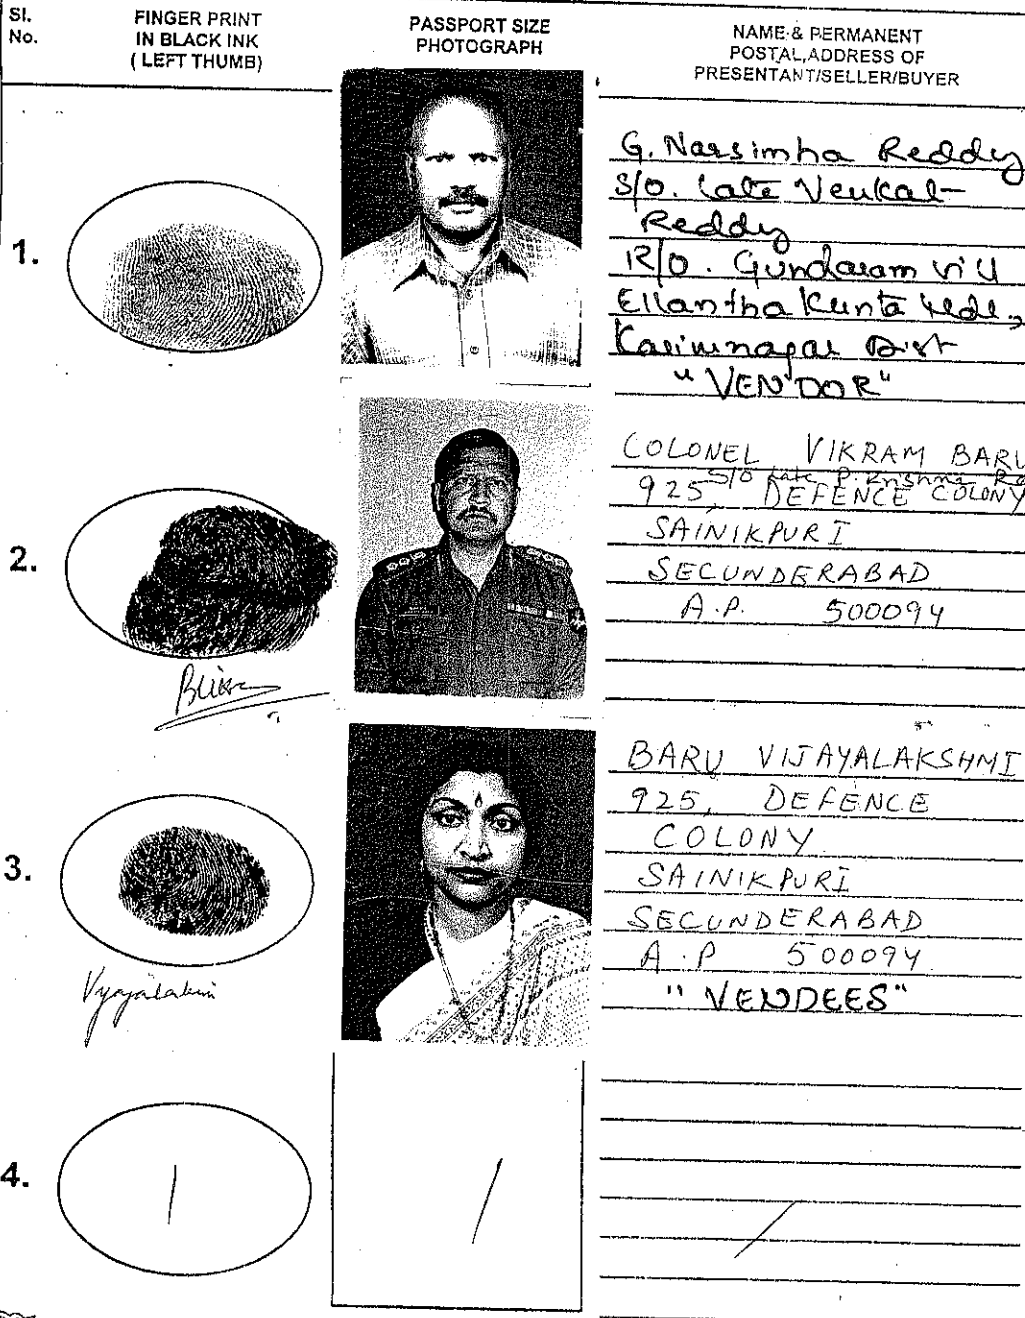 Sl.
No.
FINGER PRINT
IN BLACK INK
( LEFT THUMB)
PASSPORT SIZE
PHOTOGRAPH
NAME & PERMANENT
POSTAL ADDRESS OF
PRESENTANT/SELLER/BUYER
1.
G. Narsimha Reddy
S/o. Late Venkat-
Reddy
R/o. Gundaram Vill
Ellantha Kunta Mdl,
Karimnagar Dist
"VENDOR"
2.
COLONEL VIKRAM BARU
S/O Late P. Krishna
925, DEFENCE COLONY
SAINIKPURI
SECUNDERABAD
A.P. 500094
3.
Vijayalakshmi
BARU VIJAYALAKSHMI
925, DEFENCE
COLONY
SAINIKPURI
SECUNDERABAD
A.P 500094
"VENDEES"
4.